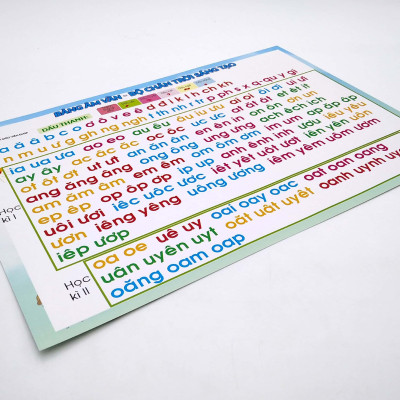 BẢNG ÂM VẦN - BỘ CHÂN TRỜI SÁNG TẠO
DẤU THANH
a ă â b c o d ô v e ê đ i k l h ch kh
n m u ư g gh ng ngh t th nh r tr p ph s x q-qu y gi
ia ua ưa ao eo au êu âu iu ưu ai oi ôi ơi ui ưi
ay ây ac ăc âc oc ôc uc ưc at ăt ât et êt it
ot ôt ơt ut ưt an ăn ân en ên in on ôn ơn un
ang ăng âng ong ông ung ưng ach êch ich
am ăm âm em êm om ôm ơm im um ap ăp âp
ep êp op ôp ơp ip up anh ênh inh
uôi ươi iêc uôc ươc iêt yêt uôt ươt iên yên uôn
ươn iêng yêng uông ương iêm yêm uôm ươm
iêp ươp
Học
kì I
oa oe uê uy oai oay oac oat oan oang
uân uyên uyt oăt uât uyêt oanh uynh
oăng oam oap
Học
kì II